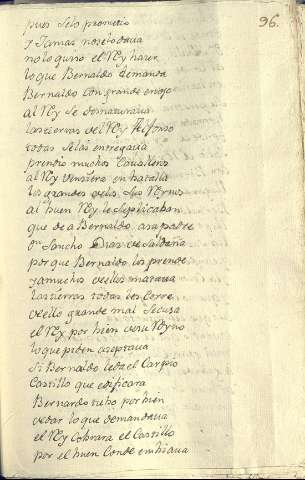 96.
pues selo prometio
y Jamas noselo daua
no lo quiso el Rey hazer
lo que Bernaldo demanda
Bernaldo con grande enojo
al Rey se desnaturaua
las tierras del Rey Alfonso
todas selas entregaua
prendio muchos Caualleros
al Rey venciera en batalla
los grandes de los sus Reynos
al buen Rey le suplicaban
que de a Bernaldo a su padre
Dn Sancho Diaz de Saldaña
porque Bernaldo los prende
y a muchos dellos mataua
las tierras todas les Corre
dello grande mal se causa
el Rey por bien de su Reyno
lo que piden aceptaua
si Bernaldo le da el Carpio
Castillo que edificara
Bernardo tubo por bien
de dar lo que demandaua
el Rey Cobrara el Castillo
por el buen Conde embiaua